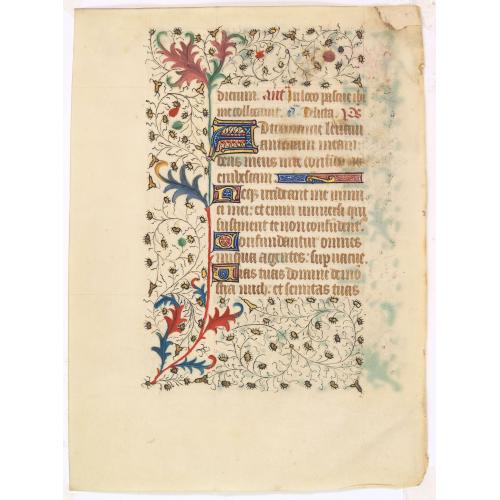 dictum. Ant In loco pascue ibi
me collocauit. a Delicta. ps
Ad te domine leuaui
animam meam
deus meus in te confido non
erubescam
Neqz irrideant me inimi
ci mei: et enim uniuersi qui
sustinent te non confundent.
Confundantur omnes
iniqua agentes: superuacue
Uias tuas domine demo
stra mich: et semitas tuas